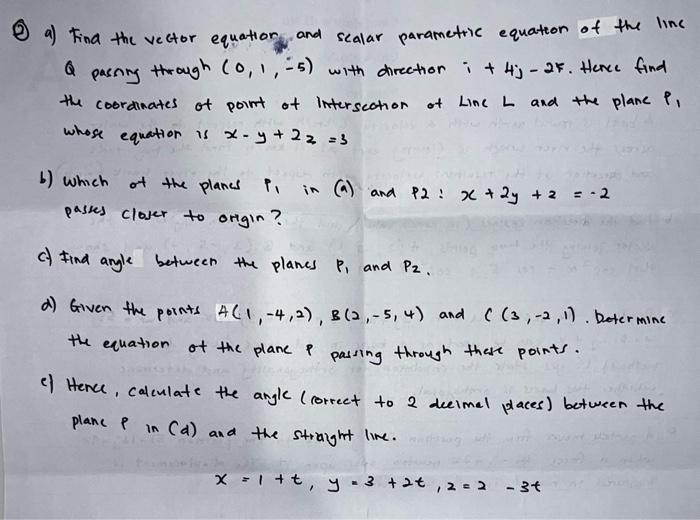 ② a) Find the vector equation and scalar parametric equation of the line
Q passing through (0, 1, -5) with direction i + 4j - 2k. Hence find
the coordinates of point of intersection of Line L and the plane P₁
whose equation is x - y + 2z = 3
b) Which of the planes P₁ in (a) and P2 : x + 2y + z = -2
passes closer to origin ?
c) Find angle between the planes P₁ and P₂.
d) Given the points A(1, -4, 2), B(2, -5, 4) and C(3, -2, 1). Determine
the equation of the plane P passing through these points.
e) Hence, calculate the angle (correct to 2 decimal places) between the
plane P in (d) and the straight line.
x = 1 + t, y = 3 + 2t, z = 2 - 3t